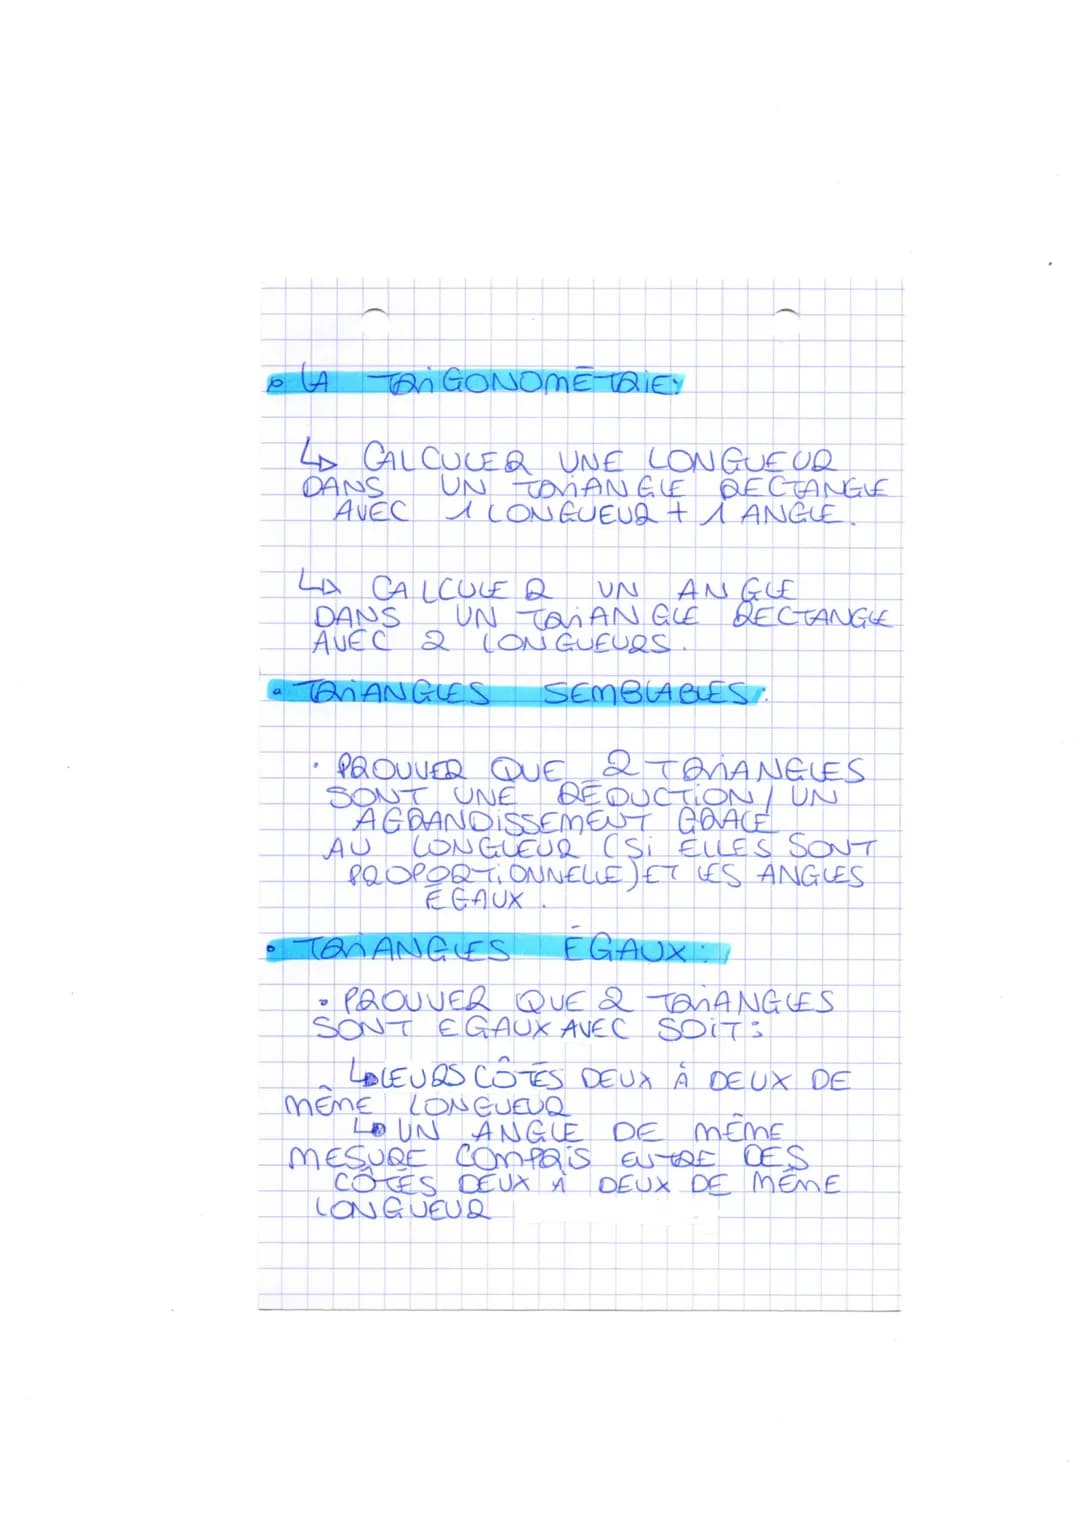 • LA TRIGONOMÉTRIE:
↳ CALCULER UNE LONGUEUR
DANS UN TRIANGLE RECTANGLE
AVEC 1 LONGUEUR + 1 ANGLE.
↳ CALCULER UN ANGLE
DANS UN TRIANGLE RECTANGLE
AVEC 2 LONGUEURS.
• TRIANGLES SEMBLABLES:
• PROUVER QUE 2 TRIANGLES
SONT UNE RÉDUCTION / UN
AGRANDISSEMENT GRACE
AU LONGUEUR (SI ELLES SONT
PROPORTIONNELLE) ET LES ANGLES
ÉGAUX.
• TRIANGLES ÉGAUX:
• PROUVER QUE 2 TRIANGLES
SONT EGAUX AVEC SOIT:
↳ LEURS CÔTÉS DEUX À DEUX DE
MÊME LONGUEUR
↳ UN ANGLE DE MÊME
MESURE COMPRIS ENTRE DES
CÔTÉS DEUX À DEUX DE MÊME
LONGUEUR